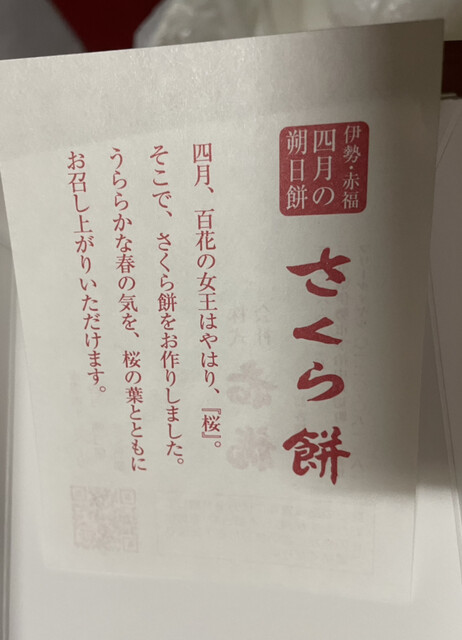 伊勢・赤福
四月の
朔日餅
さくら餅
四月、百花の女王はやはり、『桜』。
そこで、さくら餅をお作りしました。
うららかな春の気を、桜の葉とともに
お召し上がりいただけます。